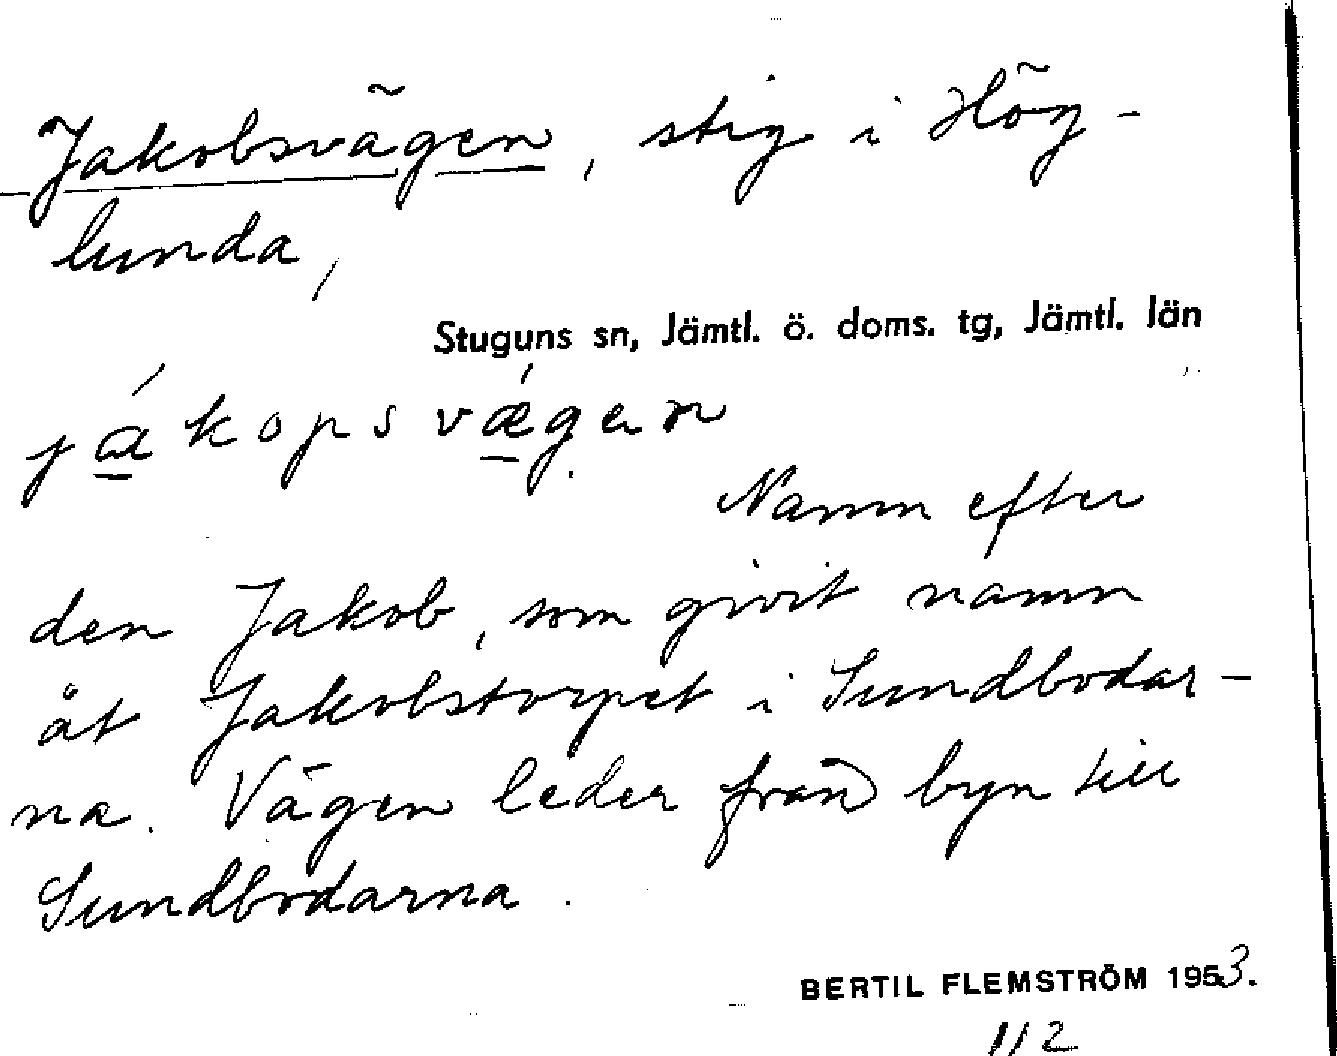 Jakobsvägen, stig i Hög-
lunda,
Stuguns sn, Jämtl. ö. doms. tg, Jämtl. län
jákopsvǽgen
Namn efter
den Jakob, som givit namn
åt Jakobstorpet i Sundbodar-
na. Vägen leder från byn till
Sundbodarna.
BERTIL FLEMSTRÖM 1953.
112